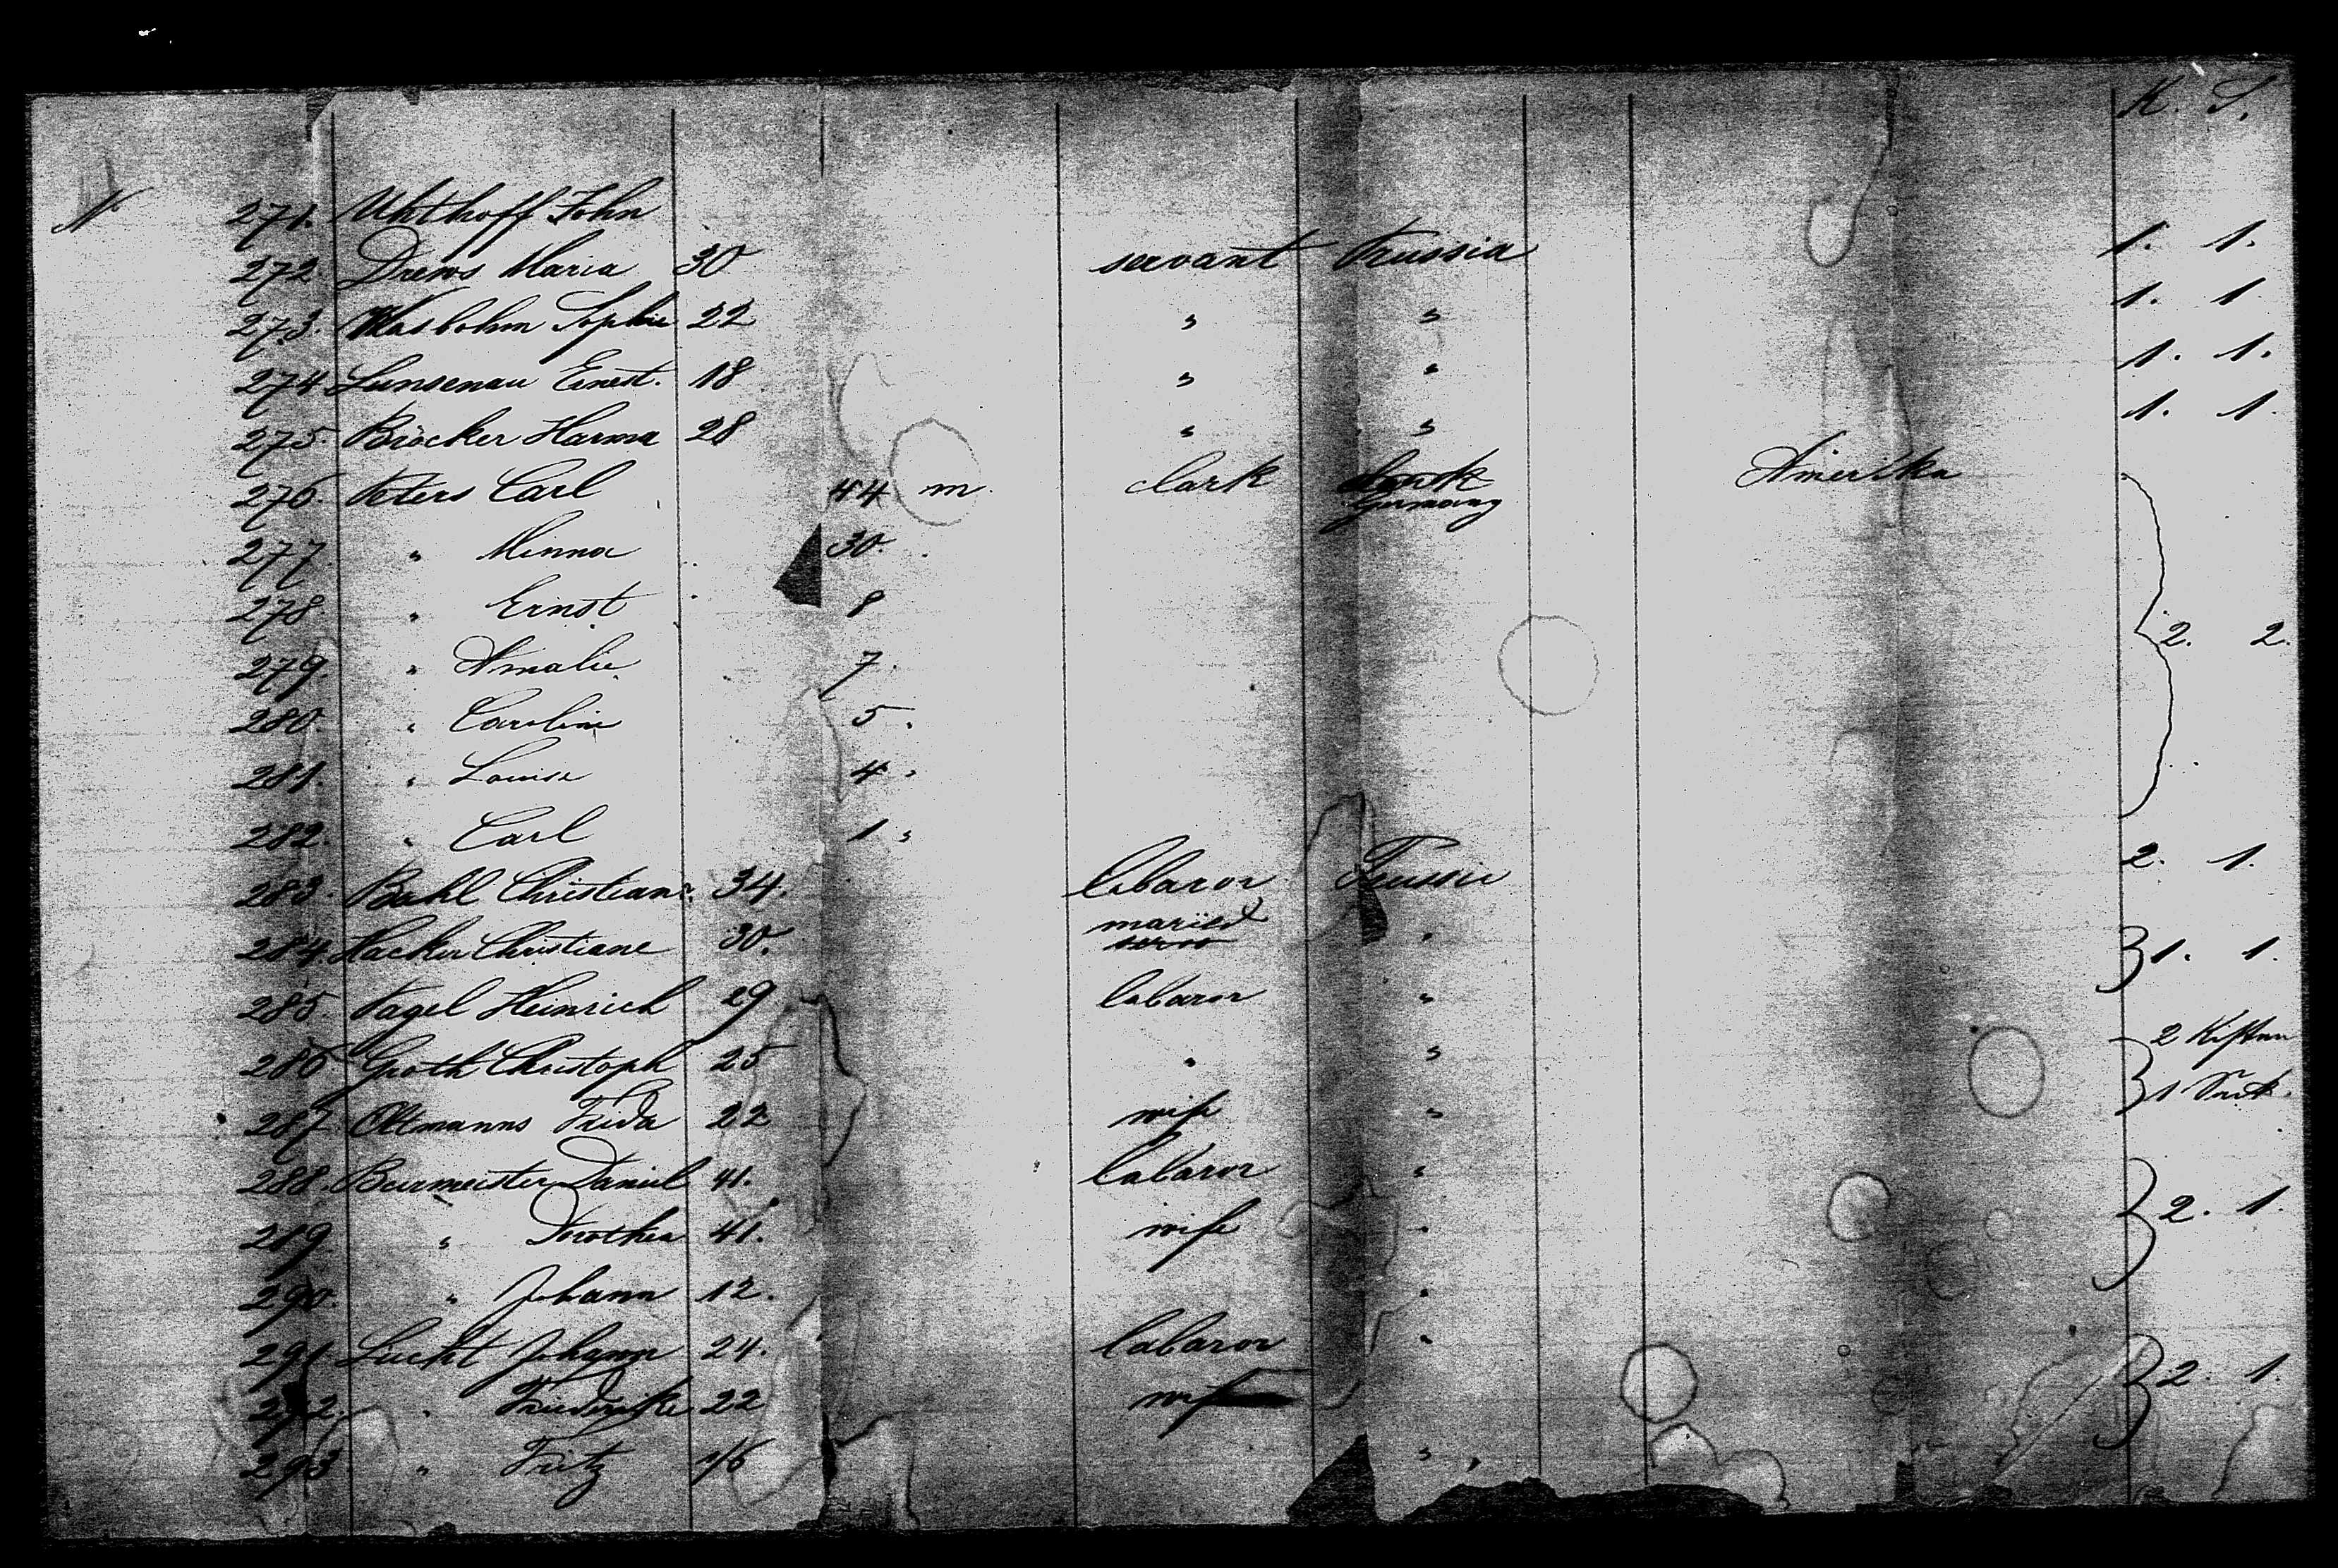 K. S.
N 271. Uhthoff John
272 Drews Maria 30 servant Prussia 1. 1.
273. Masbohm Sophie 22 " " 1. 1
274 Lunsenau Ernest. 18 " " 1. 1.
275. Bröcker Harma 28 " " 1. 1.
276. Peters Carl 44 m. clark Germany Amerika
277 " Minna 30.
278 " Ernst 8
279. " Amalie 7. 2. 2.
280. " Caroline 5 "
281. " Louise 4 "
282. " Carl 1 "
283. Bahl Christian 34. labaror Prussia 2. 1.
284. Hacker Christiane 30. maried " 1. 1.
285. Pagel Heinrich 29 labaror "
286 Groth Christoph 25 " " 2 Kisten
287 Oltmanns Frida 22 wife " 1
288. Burmeister Daniel 41. labaror "
289 " Dorothea 41. wife " 2. 1.
290. " Johann 12. "
291 Lucht Johann 24. labaror "
292. " Friederike 22 wife 2. 1.
293 " Fritz 1/6 " "